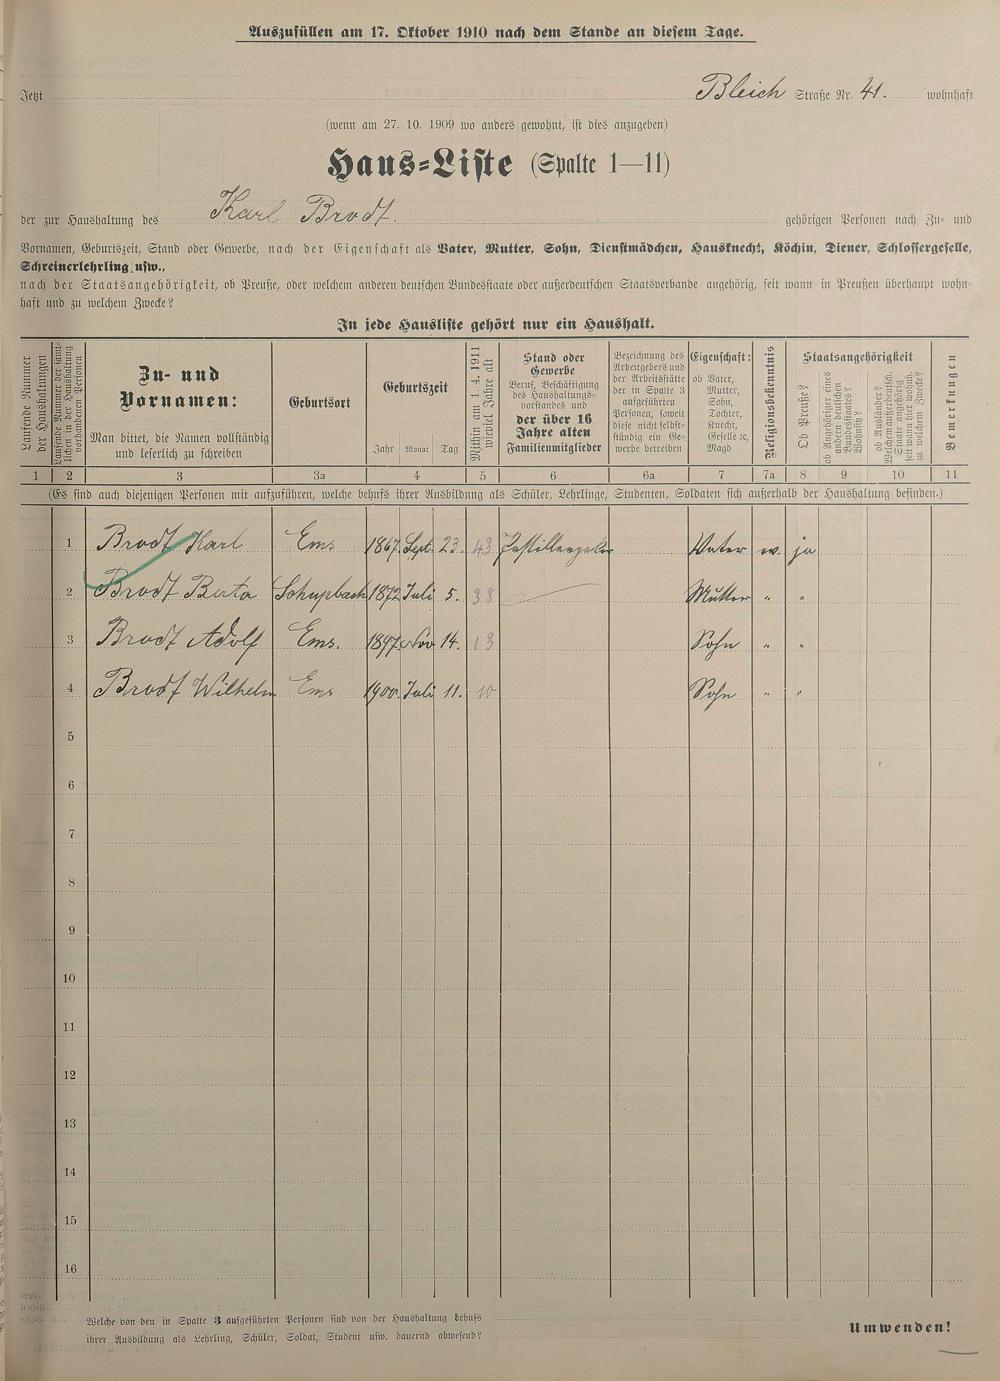 Auszufüllen am 17. Oktober 1910 nach dem Stande an diesem Tage.
Jetzt Bleich Straße Nr. 41. wohnhaft
(wenn am 27. 10. 1909 wo anders gewohnt, ist dies anzugeben)
Haus-Liste (Spalte 1—11)
der zur Haushaltung des Karl Brodt. gehörigen Personen nach Zu- und
Vornamen, Geburtszeit, Stand oder Gewerbe, nach der Eigenschaft als Vater, Mutter, Sohn, Dienstmädchen, Hausknecht, Köchin, Diener, Schlossergeselle,
Schreinerlehrling usw.,
nach der Staatsangehörigkeit, ob Preuße, oder welchem anderen deutschen Bundesstaate oder außerdeutschen Staatsverbande angehörig, seit wann in Preußen überhaupt wohn-
haft und zu welchem Zwecke?
In jede Hausliste gehört nur ein Haushalt.
Laufende Nummer der Haushaltungen
Laufende Nummer der sämt-
lichen in der Haushaltung
vorhandenen Personen
Zu- und
Vornamen:
Man bittet, die Namen vollständig
und leserlich zu schreiben
Geburtsort
Geburtszeit
Jahr Monat Tag
Mithin am 1. 4. 1911
wieviel Jahre alt
Stand oder
Gewerbe
Beruf, Beschäftigung
des Haushaltungs-
vorstandes und
der über 16
Jahre alten
Familienmitglieder
Bezeichnung des
Arbeitgebers und
der Arbeitsstätte
der in Spalte 3
aufgeführten
Personen, soweit
diese nicht selbst-
ständig ein Ge-
werbe betreiben
Eigenschaft:
ob Vater,
Mutter,
Sohn,
Tochter,
Knecht,
Geselle ec,
Magd
Religionsbekenntnis
Staatsangehörigkeit
Ob Preuße?
ob Angehöriger eines
andern deutschen
Bundesstaates?
Wohnsitz?
ob Ausländer?
Welchem außerdeutsch.
Staate angehörig
seit wann hier wohnh.
zu welchem Zwecke?
Bemerkungen
1 2 3 3a 4 5 6 6a 7 7a 8 9 10 11
(Es sind auch diejenigen Personen mit aufzuführen, welche behufs ihrer Ausbildung als Schüler, Lehrlinge, Studenten, Soldaten sich außerhalb der Haushaltung befinden.)
1 Brodt Karl Ems 1867 Sept. 23. 43 Vater ev. ja
2 Brodt Berta Schupbach 1872 Juli 5. 38 Mutter " "
3 Brodt Adolf Ems. 1897 Nov 14. 13 Sohn " "
4 Brodt Wilhelm Ems 1900. Juli 11. 10 Sohn " "
5
6
7
8
9
10
11
12
13
14
15
16
Welche von den in Spalte 3 aufgeführten Personen sind von der Haushaltung behufs
ihrer Ausbildung als Lehrling, Schüler, Soldat, Student usw. dauernd abwesend?
Umwenden!